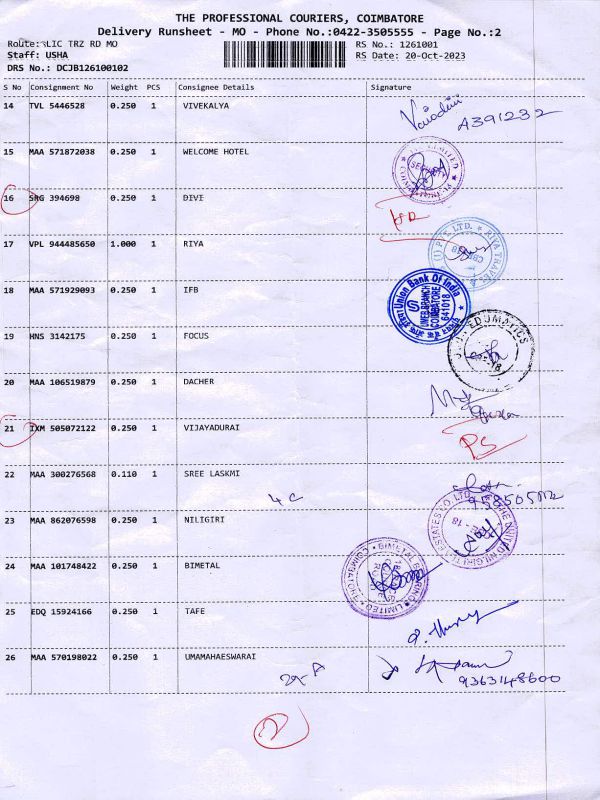 THE PROFESSIONAL COURIERS, COIMBATORE
Delivery Runsheet - MO - Phone No.:0422-3505555 - Page No.:2
Route: LIC TRZ RD MO RS No.: 1261001
Staff: USHA RS Date: 20-Oct-2023
DRS No.: DCJB126100102
S No Consignment No Weight PCS Consignee Details Signature
14 TVL 5446528 0.250 1 VIVEKALYA
A391232
15 MAA 571872038 0.250 1 WELCOME HOTEL
LIMITED
SECURITY
16 SRG 394698 0.250 1 DIVI
17 VPL 944485650 1.000 1 RIYA
RIYA TRAVEL
(I) P LTD.
18 MAA 571929093 0.250 1 IFB
Union Bank Of India
BRANCH
COIMBATORE
641018
19 HNS 3142175 0.250 1 FOCUS
EDUMATES
20 MAA 106519879 0.250 1 DACHER
21 IXM 505072122 0.250 1 VIJAYADURAI
PS
22 MAA 300276568 0.110 1 SREE LASKMI
4C
23 MAA 862076598 0.250 1 NILIGIRI
THE UNITED NILGIRI TEA ESTATES CO. LTD.
24 MAA 101748422 0.250 1 BIMETAL
BIMETAL BEARINGS LIMITED
25 EDQ 15924166 0.250 1 TAFE
26 MAA 570198022 0.250 1 UMAMAHAESWARAI
9363148600
2